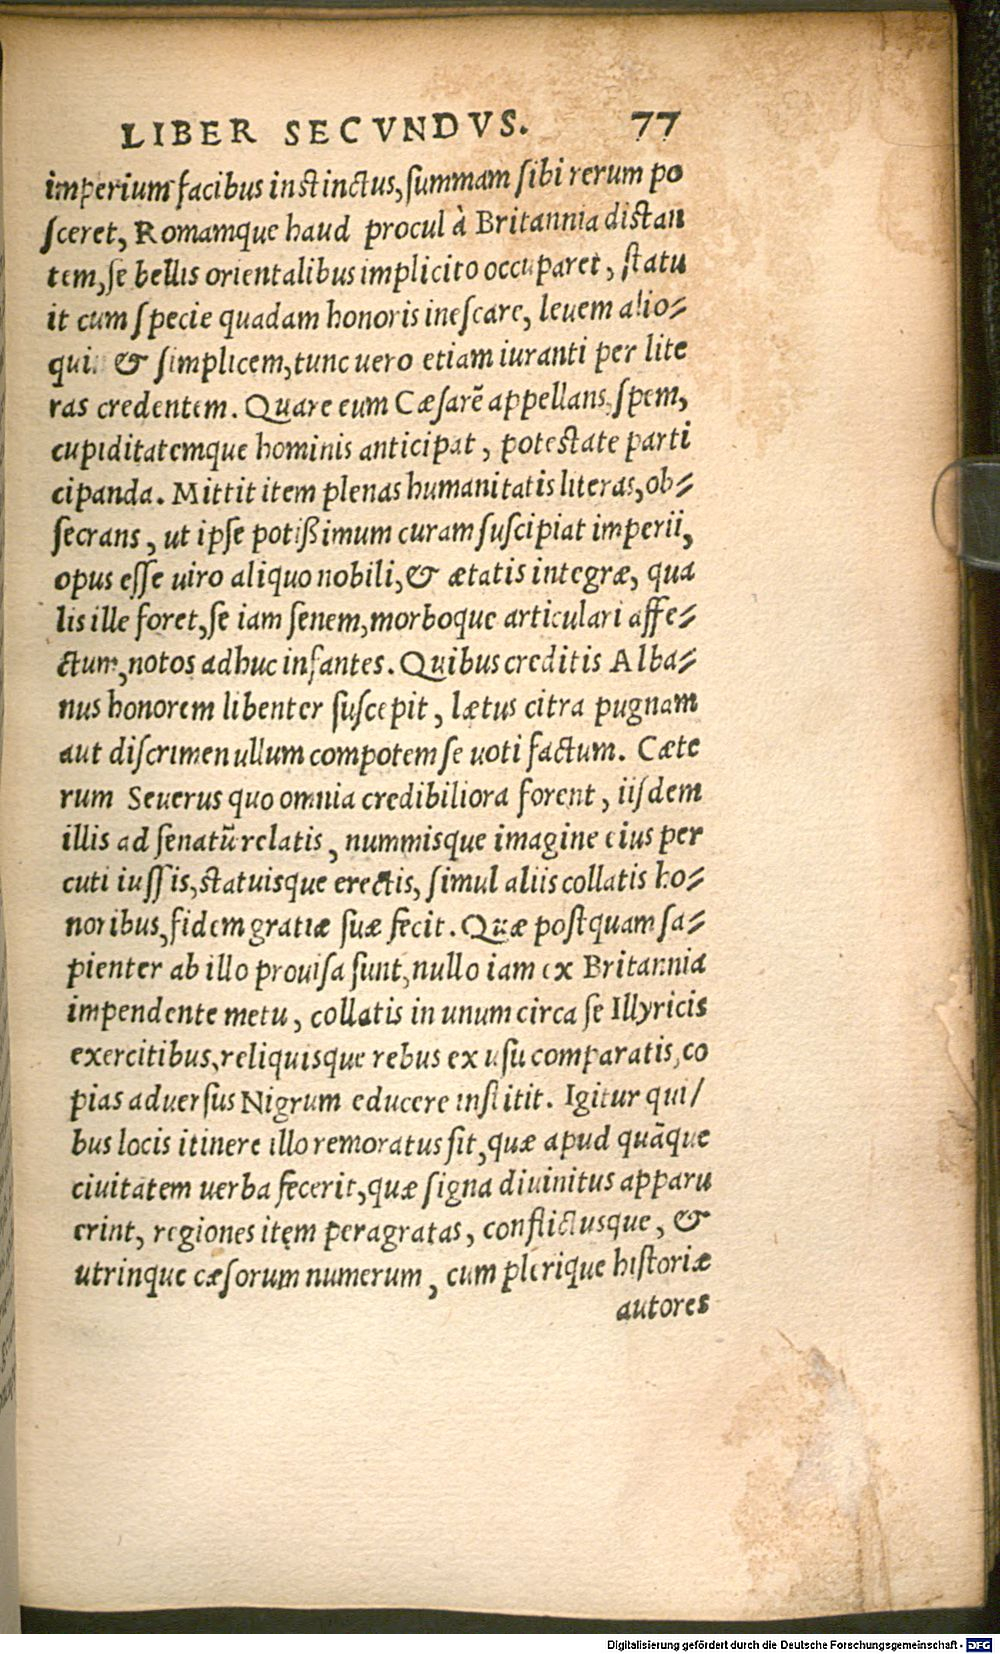 LIBER SECVNDVS. 77
imperium facibus instinctus, summam sibi rerum po
sceret, Romamque haud procul à Britannia distan
tem, se bellis orientalibus implicito occuparet, statu
it cum specie quadam honoris inescare, leuem alio⸗
qui. & simplicem, tunc uero etiam iuranti per lite
ras credentem. Quare eum Cæsarẽ appellans, spem,
cupiditatemque hominis anticipat, potestate parti
cipanda. Mittit item plenas humanitatis literas, ob⸗
secrans, ut ipse potißimum curam suscipiat imperii,
opus esse uiro aliquo nobili, & ætatis integræ, qua
lis ille foret, se iam senem, morboque articulari affe⸗
ctum, notos adhuc infantes. Quibus creditis Alba⸗
nus honorem libenter suscepit, lætus citra pugnam
aut discrimen ullum compotem se uoti factum. Cæte
rum Seuerus quo omnia credibiliora forent, iisdem
illis ad senatũ relatis, nummisque imagine eius per
cuti iussis, statuisque erectis, simul aliis collatis ho⸗
noribus, fidem gratiæ suæ fecit. Quæ postquam sa⸗
pienter ab illo prouisa sunt, nullo iam ex Britannia
impendente metu, collatis in unum circa se Illyricis
exercitibus, reliquisque rebus ex usu comparatis, co
pias aduersus Nigrum educere institit. Igitur qui/
bus locis itinere illo remoratus sit, quæ apud quãque
ciuitatem uerba fecerit, quæ signa diuinitus apparu
erint, regiones itẹm peragratas, conflictusque, &
utrinque cæsorum numerum, cum plerique historiæ
autores
Digitalisierung gefördert durch die Deutsche Forschungsgemeinschaft - DFG